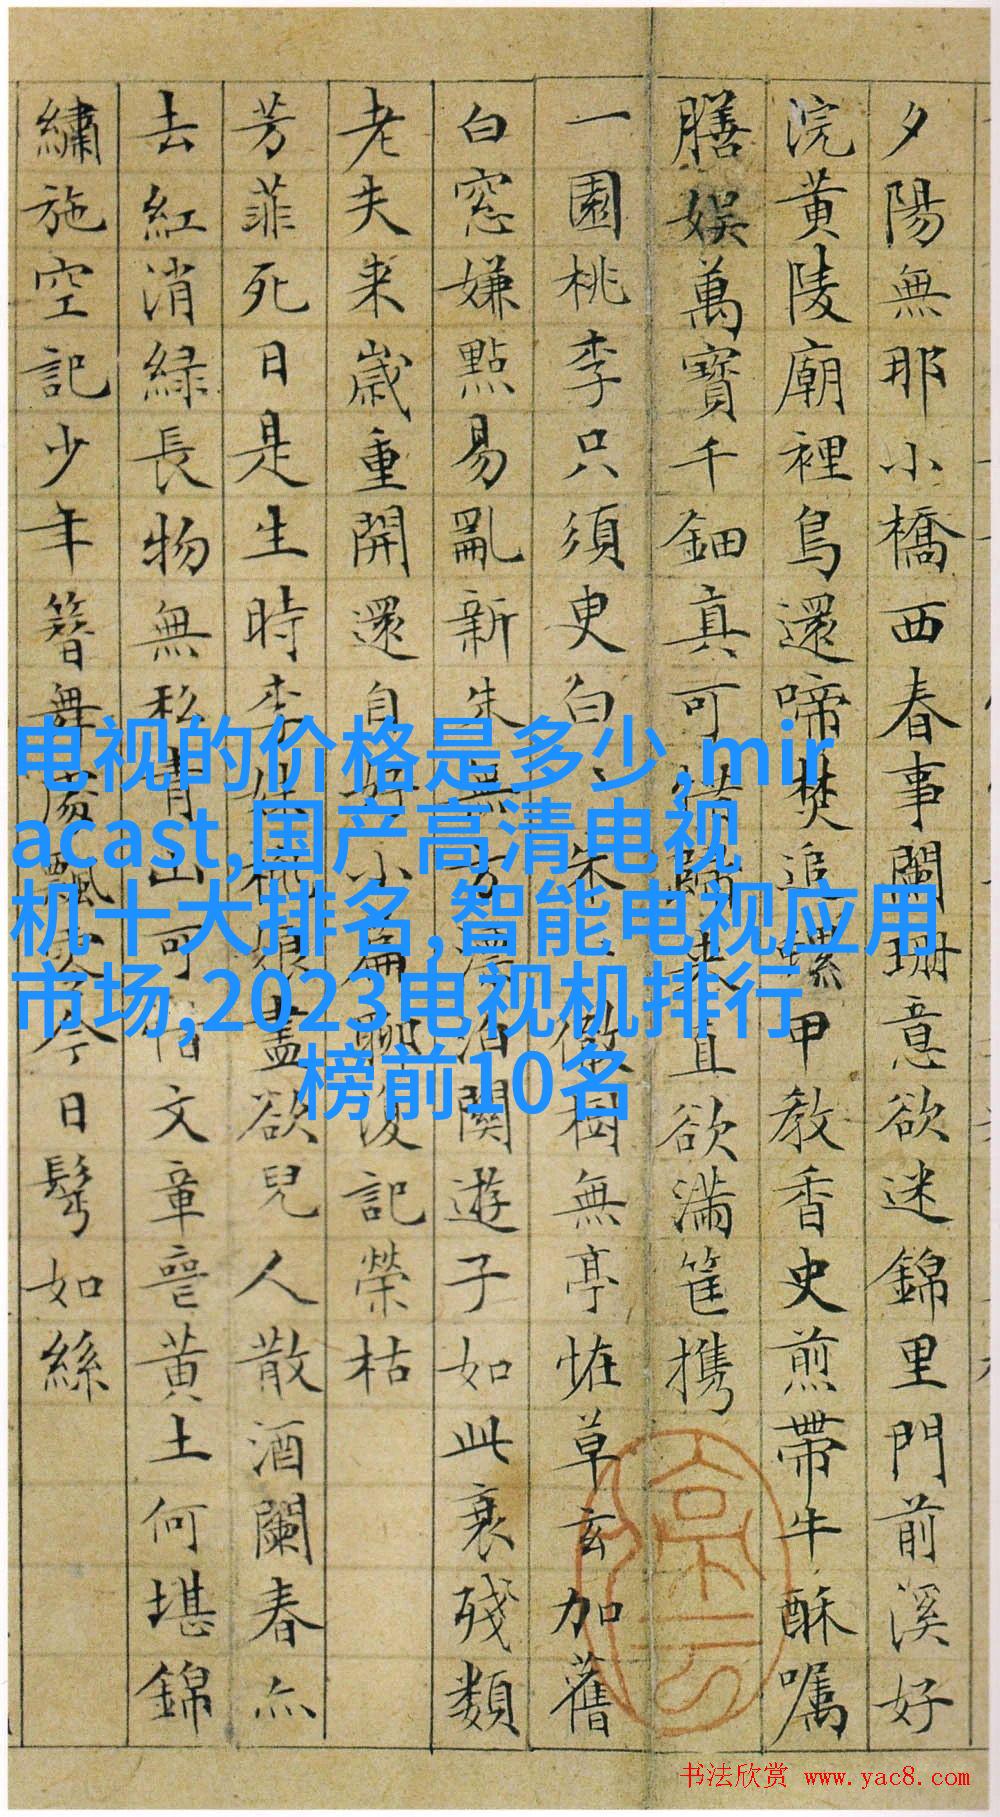 夕陽無那小橋西春事闌珊意欲迷錦里門前溪好
浣黄陵廟裡鳥還啼焚追螺甲教香史煎帶牛酥嘱
膳娱萬寶千鈿真可惜歸来直欲滿筐携
一園桃李只須臾白〻朱〻徹樹無亭恠草玄加舊
白窓嫌點易亂新朱無方漂泊關遊子如此衰残類
老夫来歲重開還自好小篇聊復記榮枯
芳菲死日是生時李妹桃娘盡欲兒人散酒闌春亦
去紅消緑長物無私青山可惜文章喪黄土何堪錦
繡施空記少年簪舞處飄零今日鬓如絲
电视的价格是多少,mir
acast,国产高清电视
机十大排名,智能电视应用
市场,2023电视机排行
榜前10名
书法欣赏 www.yac8.com